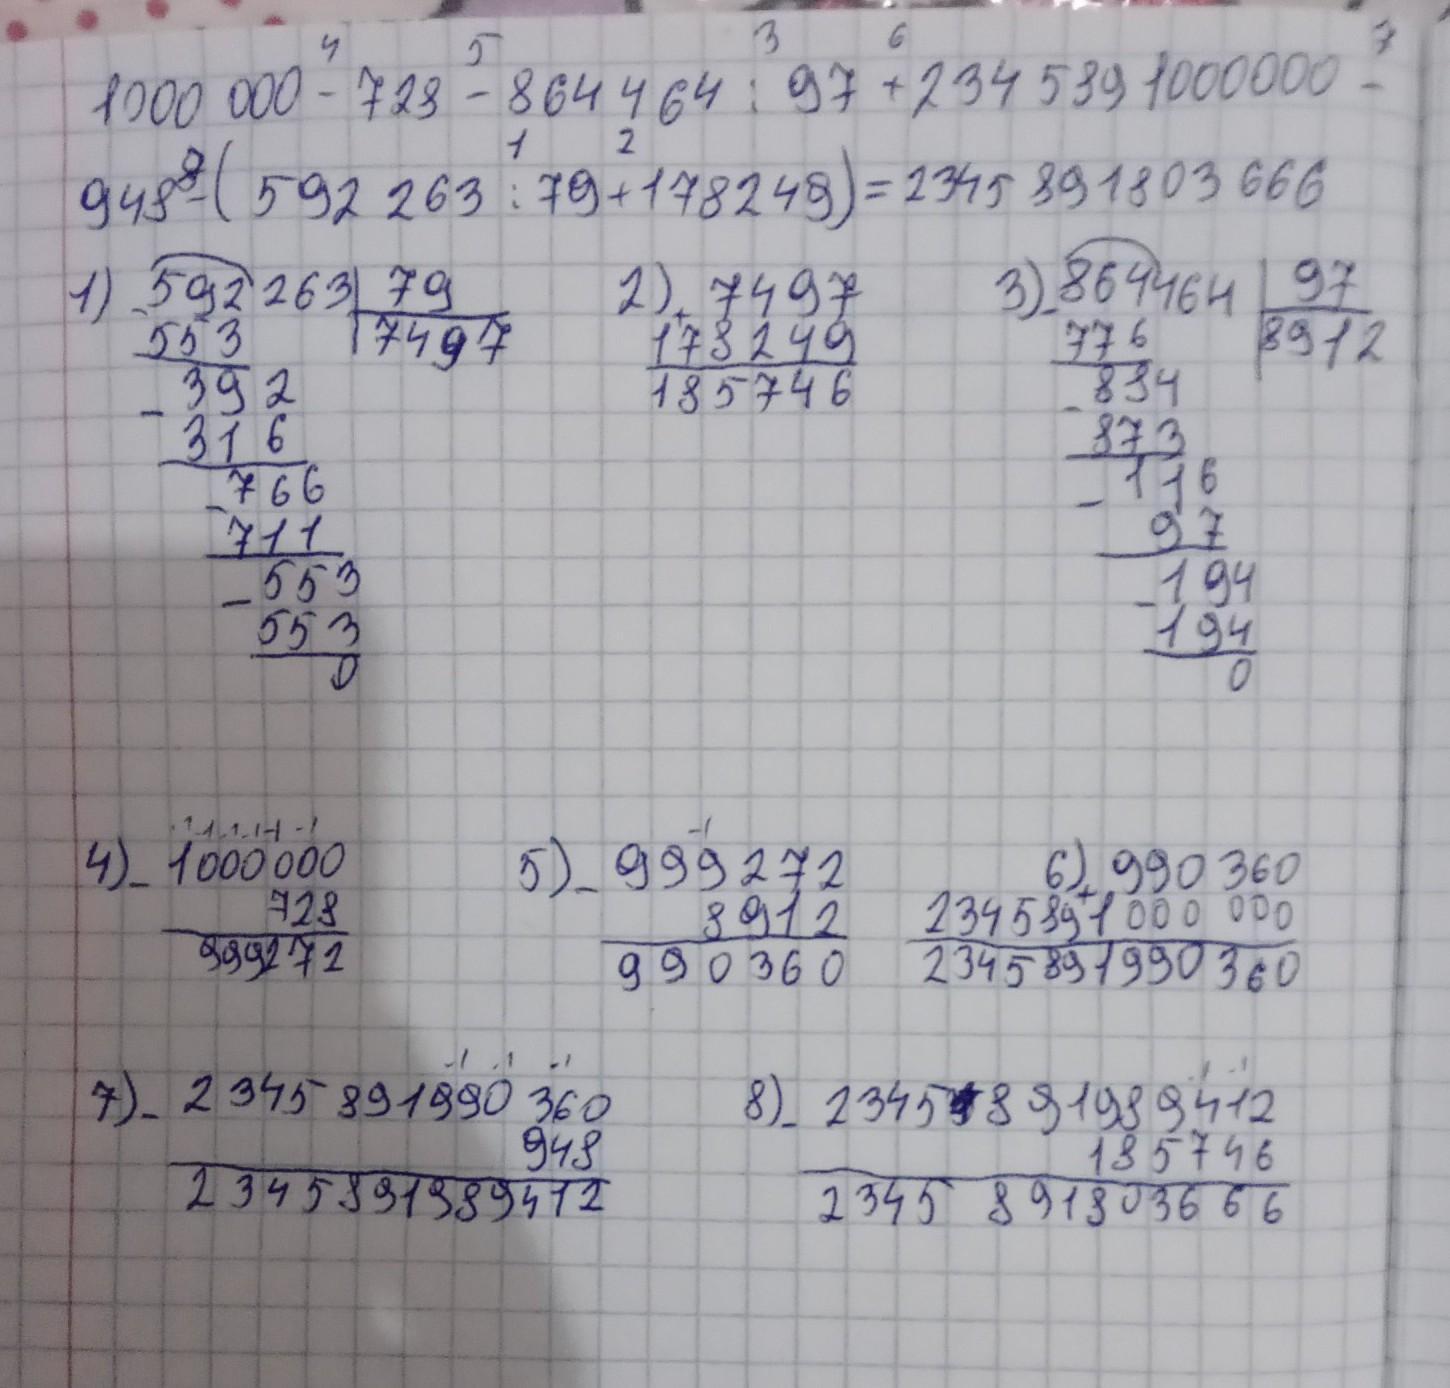 4 5 3 6 7
1000 000 - 728 - 864 464 : 97 + 234 5891000000 -
8 1 2
948 - ( 592 263 : 79 + 178249 ) = 2345 891803 666
1) - 592 263 | 79 2) + 7497 3) - 864464 | 97
553 7497 178249 776 8912
- 392 185746 - 884
316 873
- 766 - 116
711 97
- 553 - 194
553 194
0 0
4) - 1000000 5) - 999272 6) + 990 360
728 8912 2345891000 000
999272 990360 2345891990360
7) - 2345891990360 8) - 2345891989412
948 185746
2345891989412 2345 891803666